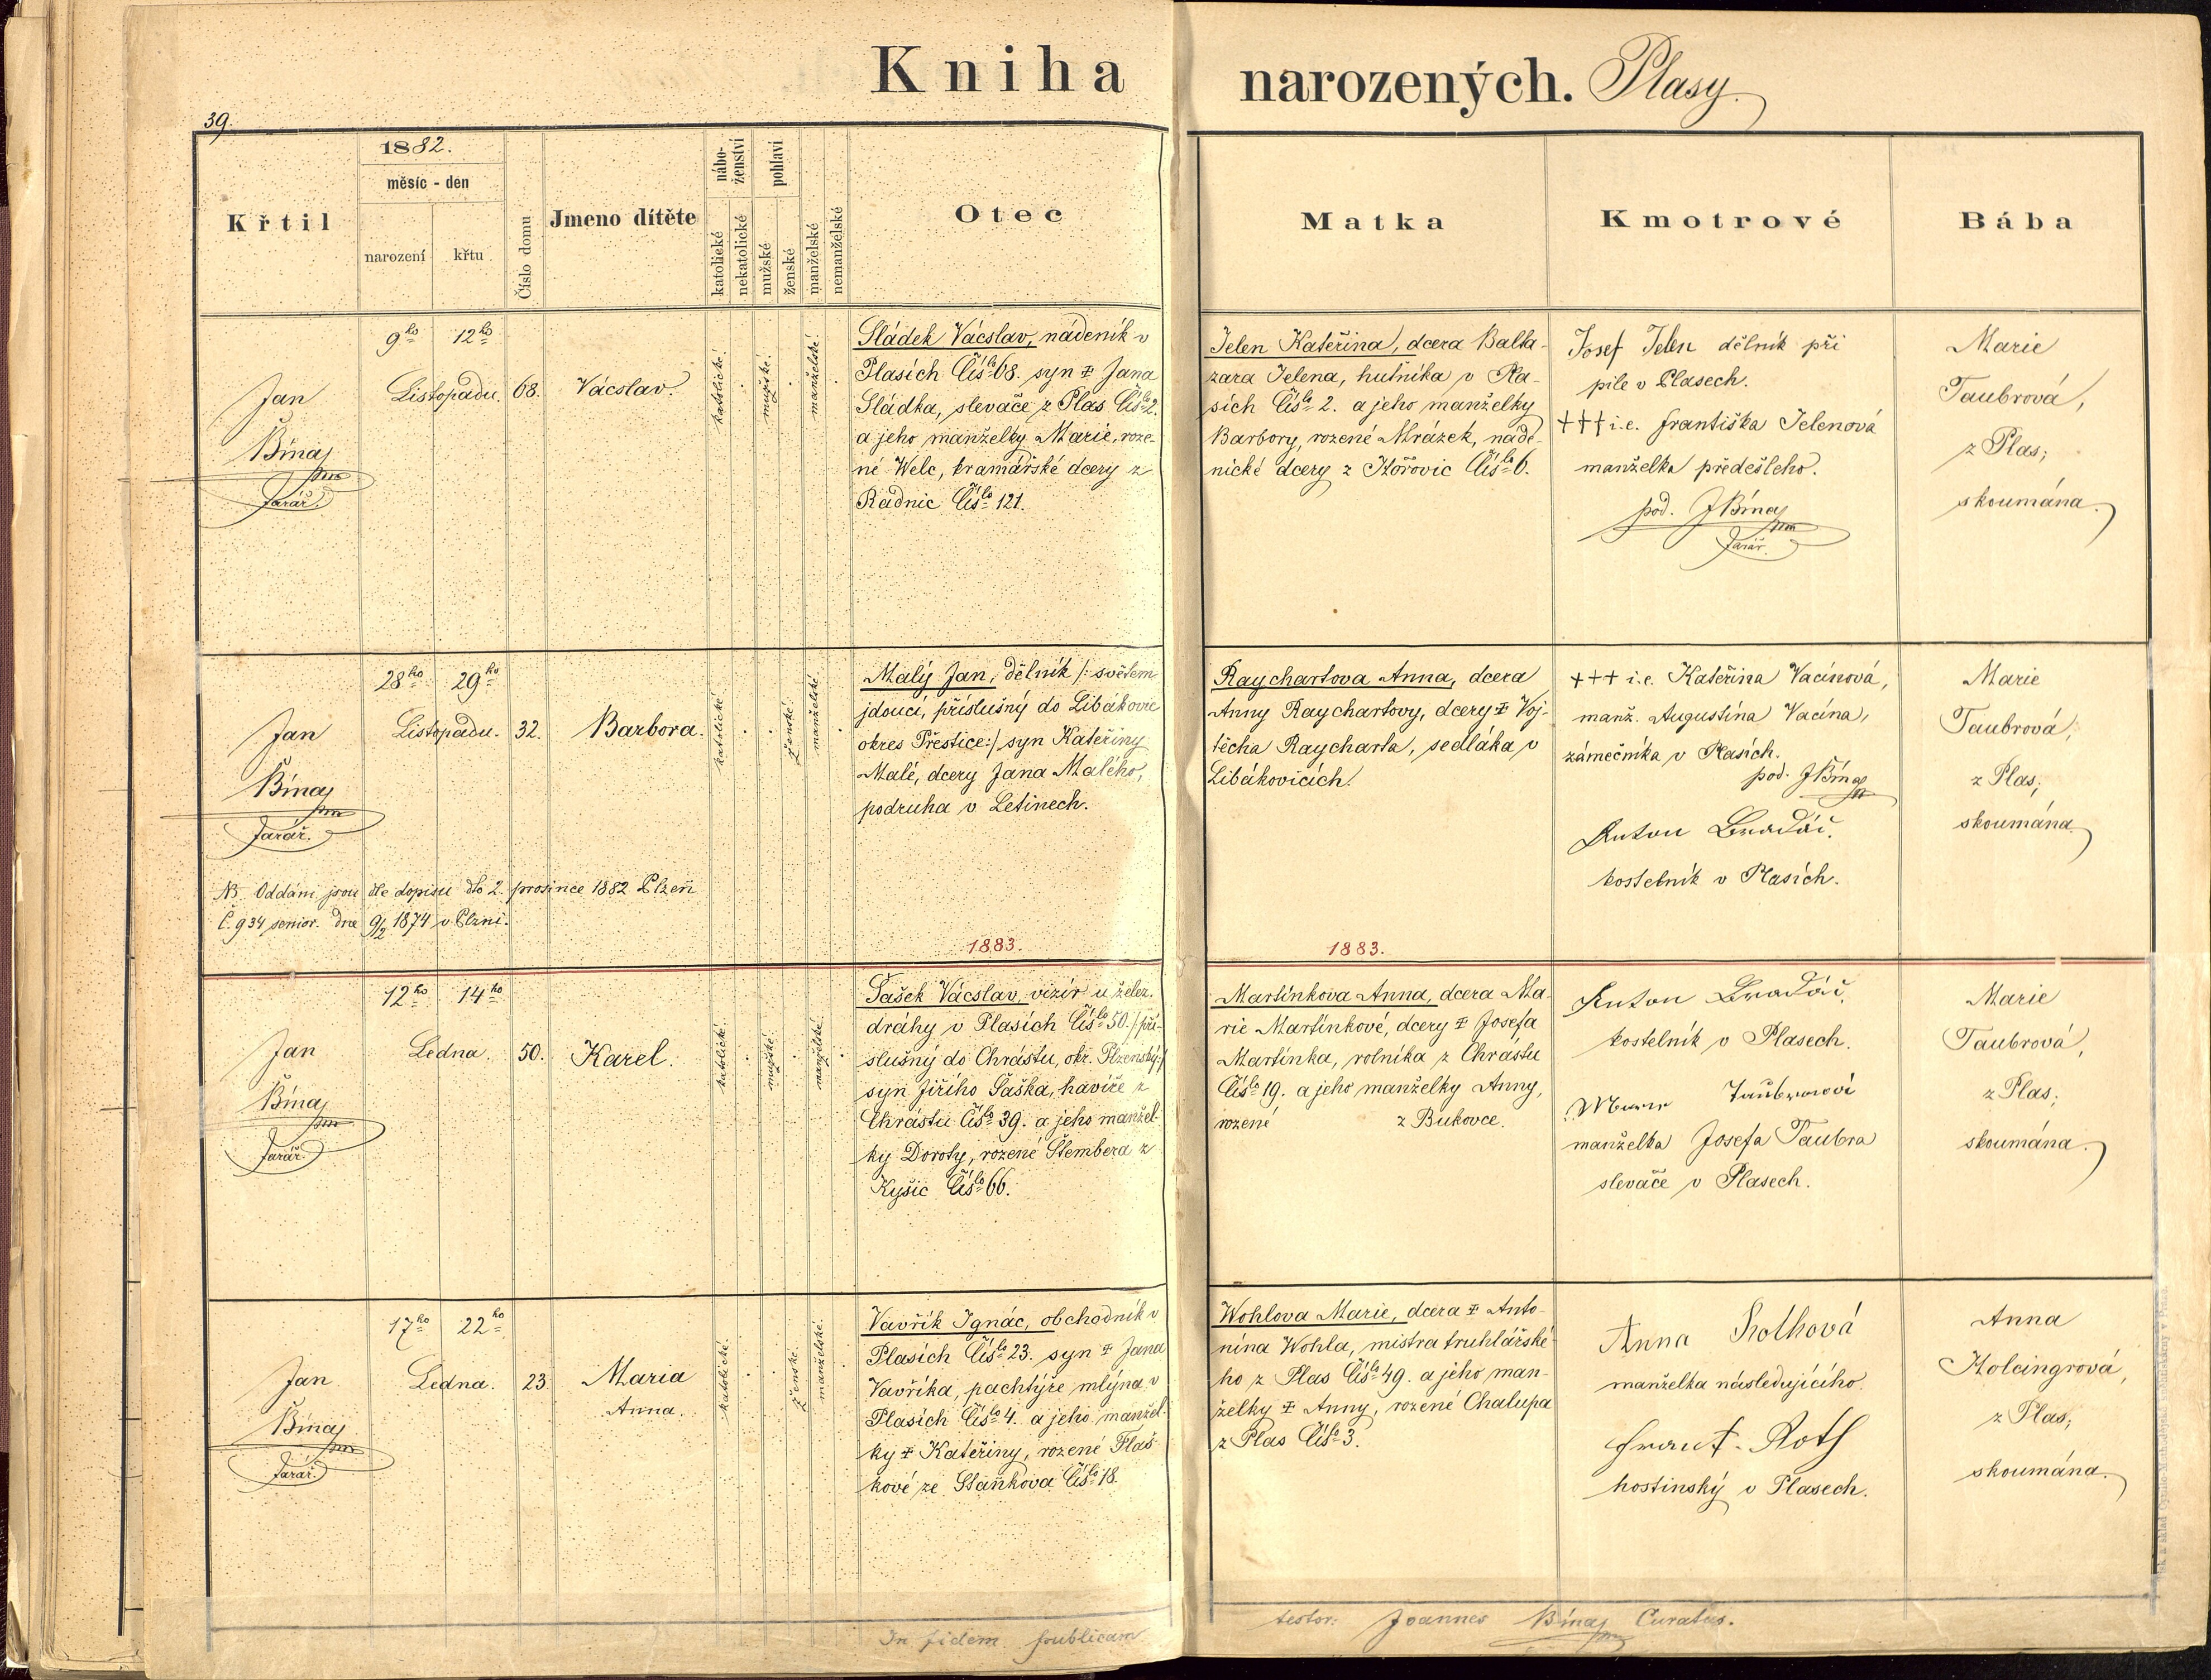 Kniha narozených. Plasy
39.
Křtil
1882.
měsíc - den
narození
křtu
Číslo domu
Jmeno dítěte
nábo-
ženství
katolické
nekatolické
pohlaví
mužské
ženské
manželské
nemanželské
Otec
Matka
Kmotrové
Bába
Jan
Bínaj
farář.
9ho 12ho
Listopadu.
68.
Vácslav.
katolické.
mužské.
manželské.
Sládek Vácslav, nádeník v
Plasích Čislo 68. syn ‡ Jana
Sládka, slevače z Plas Čislo 2.
a jeho manželky Marie, roze-
né Welc, kramářské dcery z
Radnic Čislo 121.
Jelen Kateřina, dcera Balta-
zara Jelena, hutníka v Pla-
sích Čislo 2. a jeho manželky
Barbory, rozené Mrázek, náde-
nické dcery z Hořovic Čislo 6.
Josef Jelen dělník při
pile v Plasech.
††† i.e. františka Jelenová
manželka předešlého.
pod. J Bínaj
farář.
Marie
Taubrová,
z Plas;
skoumána.
Jan
Bínaj
farář.
28ho 29ho
Listopadu.
32.
Barbora.
katolické.
ženské.
manželské.
Malý Jan, dělník /: světem
jdoucí, příslušný do Libákovic
okres Přestice:/ syn Kateřiny
Malé, dcery Jana Malého,
podruha v Letinech.
Raychartova Anna, dcera
Anny Raychartovy, dcery ‡ Voj-
těcha Raycharta, sedláka v
Libákovicích.
+++ i.e. Kateřina Vacínová,
manž. Augustina Vacína,
zámečníka v Plasích.
pod. J Bínaj
Anton Bradáč.
kostelník v Plasích.
Marie
Taubrová,
z Plas;
skoumána.
NB. Oddáni jsou dle dopisu dto 2. prosince 1882 Plzeň
č. 934 senior. dne 9/2 1874 v Plzni.
1883.
1883.
Jan
Bínaj
farář.
12ho 14ho
Ledna.
50.
Karel.
katolické.
mužské.
manželské.
Šašek Vácslav, vizír u želez.
dráhy v Plasích Čislo 50. /:pří-
slušný do Chrástu, okr. Plzenský:/
syn Jiřího Šaška, havíře z
Chrástu Čislo 39. a jeho manžel-
ky Doroty, rozené Štembera z
Kyšic Čislo 66.
Martínkova Anna, dcera Ma-
rie Martínkové, dcery ‡ Josefa
Martínka, rolníka z Chrástu
Čislo 19. a jeho manželky Anny,
rozené z Bukovce.
Anton Bradáč.
kostelník v Plasech.
Marie Taubrová
manželka Josefa Taubra
slevače v Plasech.
Marie
Taubrová,
z Plas;
skoumána.
Jan
Bínaj
farář.
17ho 22ho
Ledna.
23.
Maria
Anna.
katolické.
ženské.
manželské.
Vavřík Ignác, obchodník v
Plasích Čislo 23. syn ‡ Jana
Vavříka, pachtýře mlýna v
Plasích Čislo 4. a jeho manžel-
ky ‡ Kateřiny, rozené Flaš-
kové ze Staňkova Čislo 18.
Wohlova Marie, dcera ‡ Anto-
nína Wohla, mistra truhlářské-
ho z Plas Čislo 49. a jeho man-
želky ‡ Anny, rozené Chalupa
z Plas Čislo 3.
Anna Rothová
manželka následujícího.
Frant. Roth
hostinský v Plasech.
Anna
Holcingrová,
z Plas;
skoumána.
In fidem publicam
testor: Joannes Bínaj Curatus.